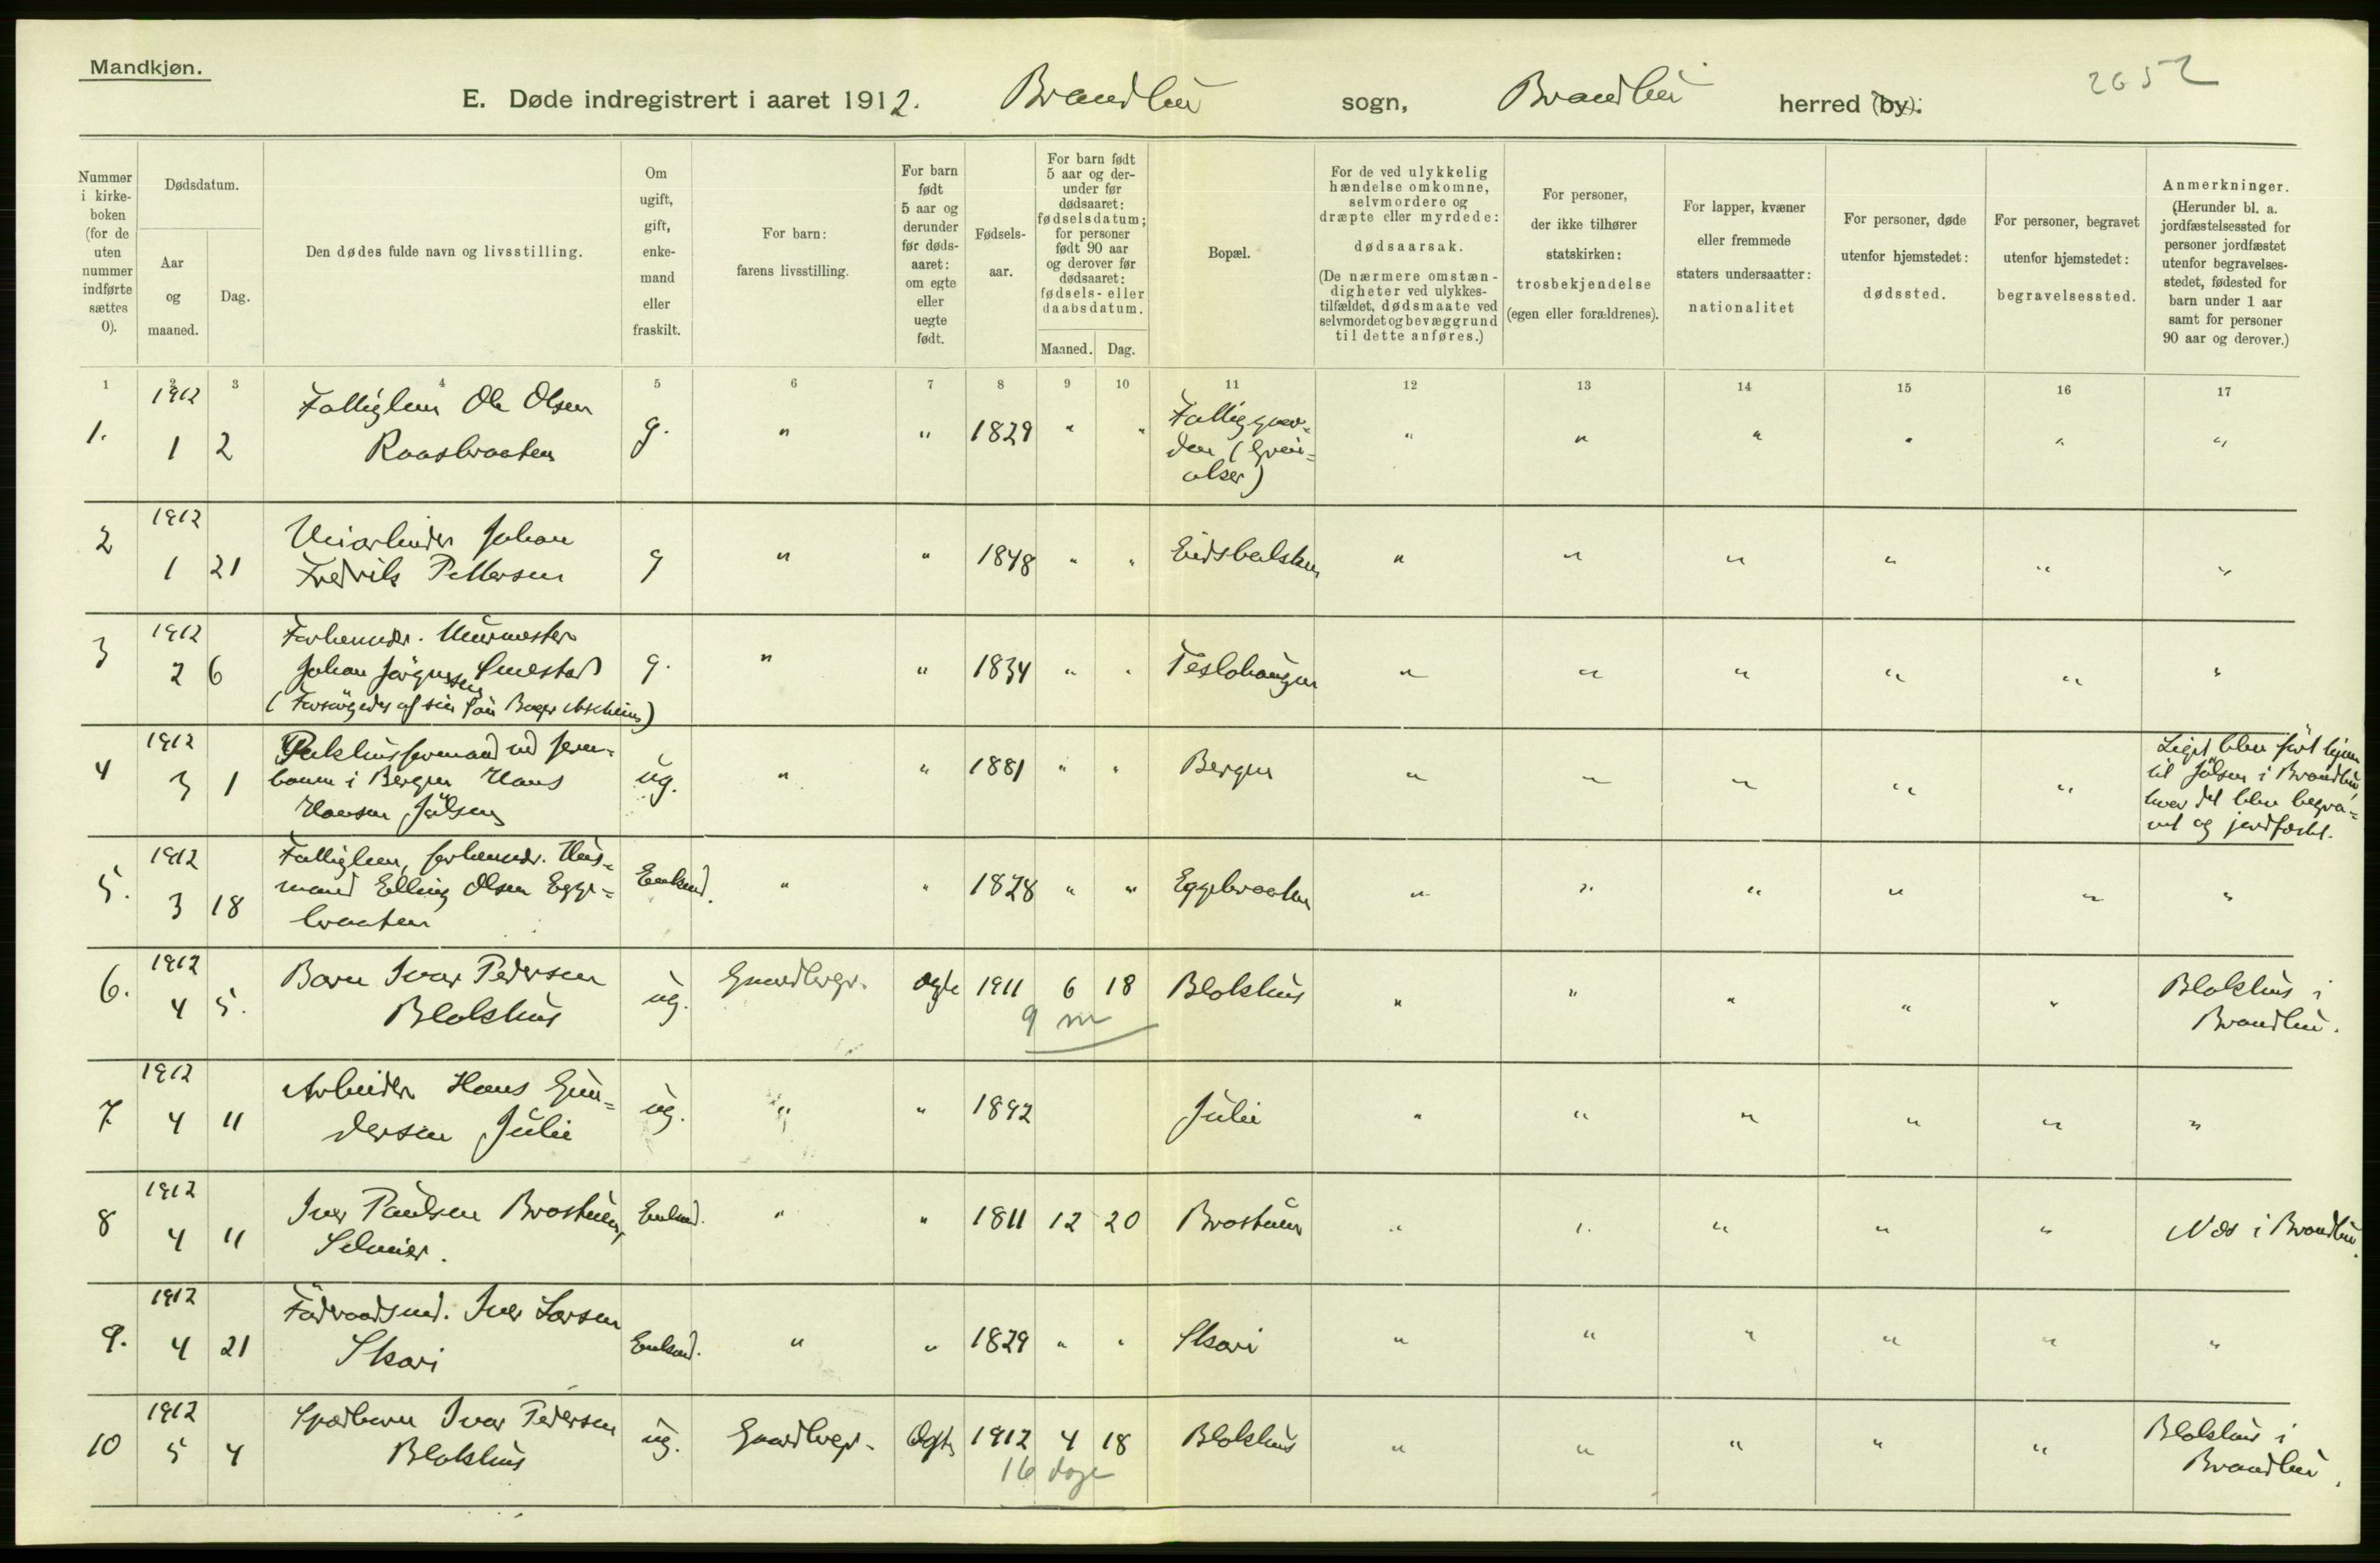 Mandkjøn.
E. Døde indregistrert i aaret 1912. Brandbu sogn, Brandbu herred (by):
2652
Nummer i kirkeboken (for de uten nummer indførte sættes 0).
Dødsdatum.
Aar og maaned.
Dag.
Den dødes fulde navn og livsstilling.
Om ugift, gift, enkemand eller fraskilt.
For barn: farens livsstilling.
For barn født 5 aar og derunder før dødsaaret: om egte eller uegte født.
Fødselsaar.
For barn født 5 aar og derunder før dødsaaret: fødselsdatum; for personer født 90 aar og derover før dødsaaret: fødsels- eller daabsdatum.
Maaned. Dag.
Bopæl.
For de ved ulykkelig hændelse omkomne, selvmordere og dræpte eller myrdede: dødsaarsak. (De nærmere omstændigheter ved ulykkestilfældet, dødsmaate ved selvmordet og bevæggrund til dette anføres.)
For personer, der ikke tilhører statskirken: trosbekjendelse (egen eller forældrenes).
For lapper, kvæner eller fremmede staters undersaatter: nationalitet
For personer, døde utenfor hjemstedet: dødssted.
For personer, begravet utenfor hjemstedet: begravelsessted.
Anmerkninger. (Herunder bl. a. jordfæstelsessted for personer jordfæstet utenfor begravelsesstedet, fødested for barn under 1 aar samt for personer 90 aar og derover.)
1 2 3 4 5 6 7 8 9 10 11 12 13 14 15 16 17
1912 Fattiglem Ole Olsen
1. 1 2 Raasbraaten g. " " 1829 " " Fattiggaar=
den (Grin=
alser) " " " " " "
1912 Veiarbeider Johan
2 1 21 Fredrik Pettersen g " " 1848 " " Eidsbalken " " " " " "
1912 Forhenvær. Murmester
3 2 6 Johan Jørgensen Smestad g. " " 1834 " " Teslohaugen " " " " " "
(Forsørgedes af sin søn Bager Aschim)
1912 Pakhusformand ved Jern=
4 3 1 banen i Bergen Hans ug. " " 1881 " " Bergen " " " " "
Hansen Jølsen
Liget blev ført hjem
til Jølsen i Brandbu,
hvor det blev begra=
vet og jordfæstet.
1912 Fattiglem, forhenvær. Hus=
5. 3 18 mand Elling Olsen Egge= Enkemd. " " 1828 " " Eggebraaten " " " " " "
braaten
1912 Barn Ivar Pedersen
6. 4 5. Blokhus ug. Gaardbrgr. Ægte 1911 6 18 Blokhus " " " " " Blokhus i
Brandbu.
9 m
1912 Arbeider Hans Gun=
7. 4 11 dersen Julie ug. " " 1892 Julie " " " " " "
1912 Iver Paulsen Brostuen,
8 4 11 Selveier. Enkmd. " " 1811 12 20 Brostuen " " " " " Næs i Brandbu.
1912 Føderaadsmd. Iver Larsen
9. 4 21 Skari Enkmd. " " 1829 " " Skari " " " " " "
1912 Spædbarn Ivar Pedersen
10 5 4 Blokhus ug. Gaardbrgr. Ægte 1912 4 18 Blokhus " " " " " Blokhus i
Brandbu.
16 dage